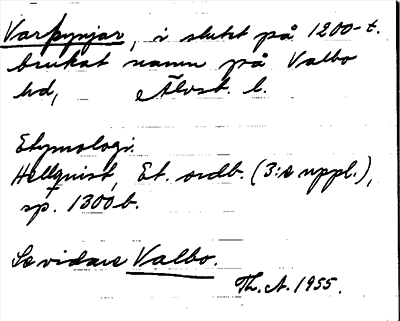 Varþynjar, i slutet på 1200-t.
brukat namn på Valbo
hd, Älvsb. l.
Etymologi.
Hellquist, Et. ordb. (3:e uppl.),
sp. 1300 b.
Se vidare Valbo.
Th. A. 1955.